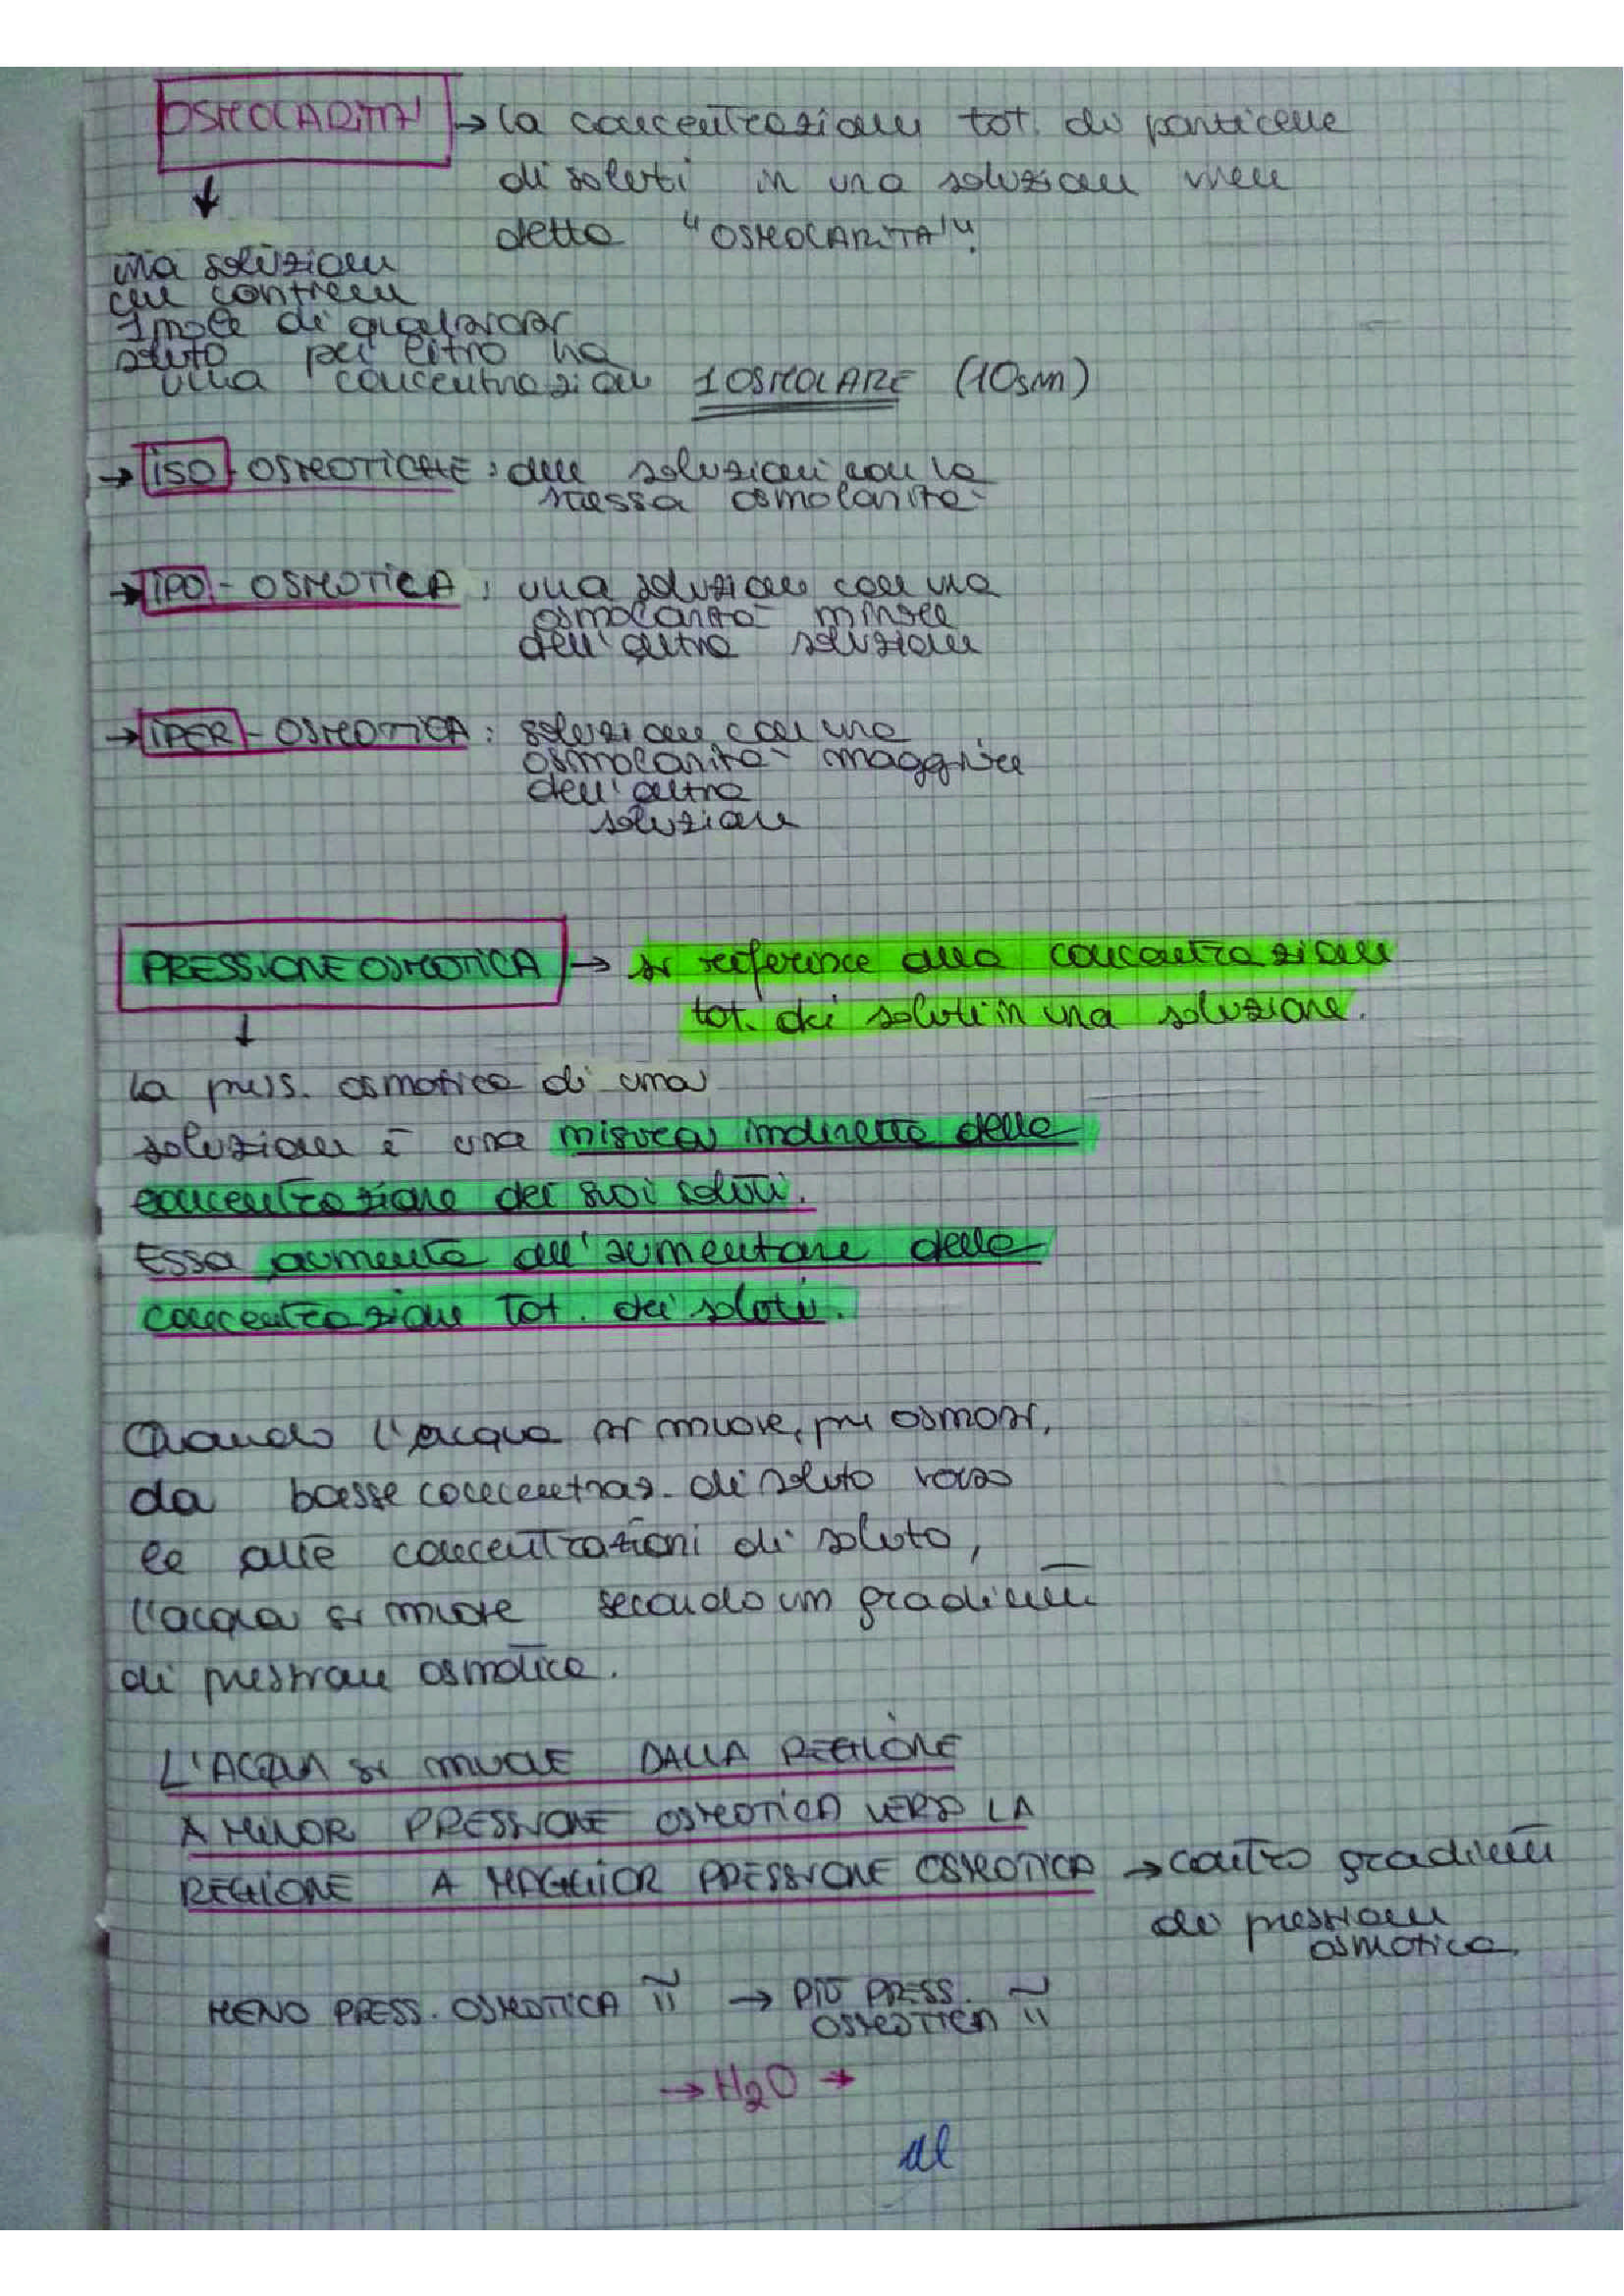 OSMOLARITA' → la concentrazione tot. di particelle
di soluti in una soluzione viene
detta "OSMOLARITA'".
↓
una soluzione
che contiene
1 mole di qualsiasi
soluto per litro ha
una concentrazione 1 OSMOLARE (1Osm)
→ ISO-OSMOTICHE: due soluzioni con la
stessa osmolarità
→ IPO-OSMOTICA: una soluzione con una
osmolarità minore
dell'altra soluzione
→ IPER-OSMOTICA: soluzione con una
osmolarità maggiore
dell'altra
soluzione
PRESSIONE OSMOTICA → si riferisce alla concentrazione
tot. dei soluti in una soluzione.
↓
la press. osmotica di una
soluzione è una misura indiretta della
concentrazione dei suoi soluti.
Essa aumenta all'aumentare della
concentrazione tot. dei soluti.
Quando l'acqua si muove, per osmosi,
da basse concentraz. di soluto verso
le alte concentrazioni di soluto,
l'acqua si muove secondo un gradiente
di pressione osmotica.
L'ACQUA SI MUOVE DALLA REGIONE
A MINOR PRESSIONE OSMOTICA VERSO LA
REGIONE A MAGGIOR PRESSIONE OSMOTICA → contro gradiente
di pressione
osmotica.
MENO PRESS. OSMOTICA → PIÙ PRESS.
OSMOTICA
→ H2O →